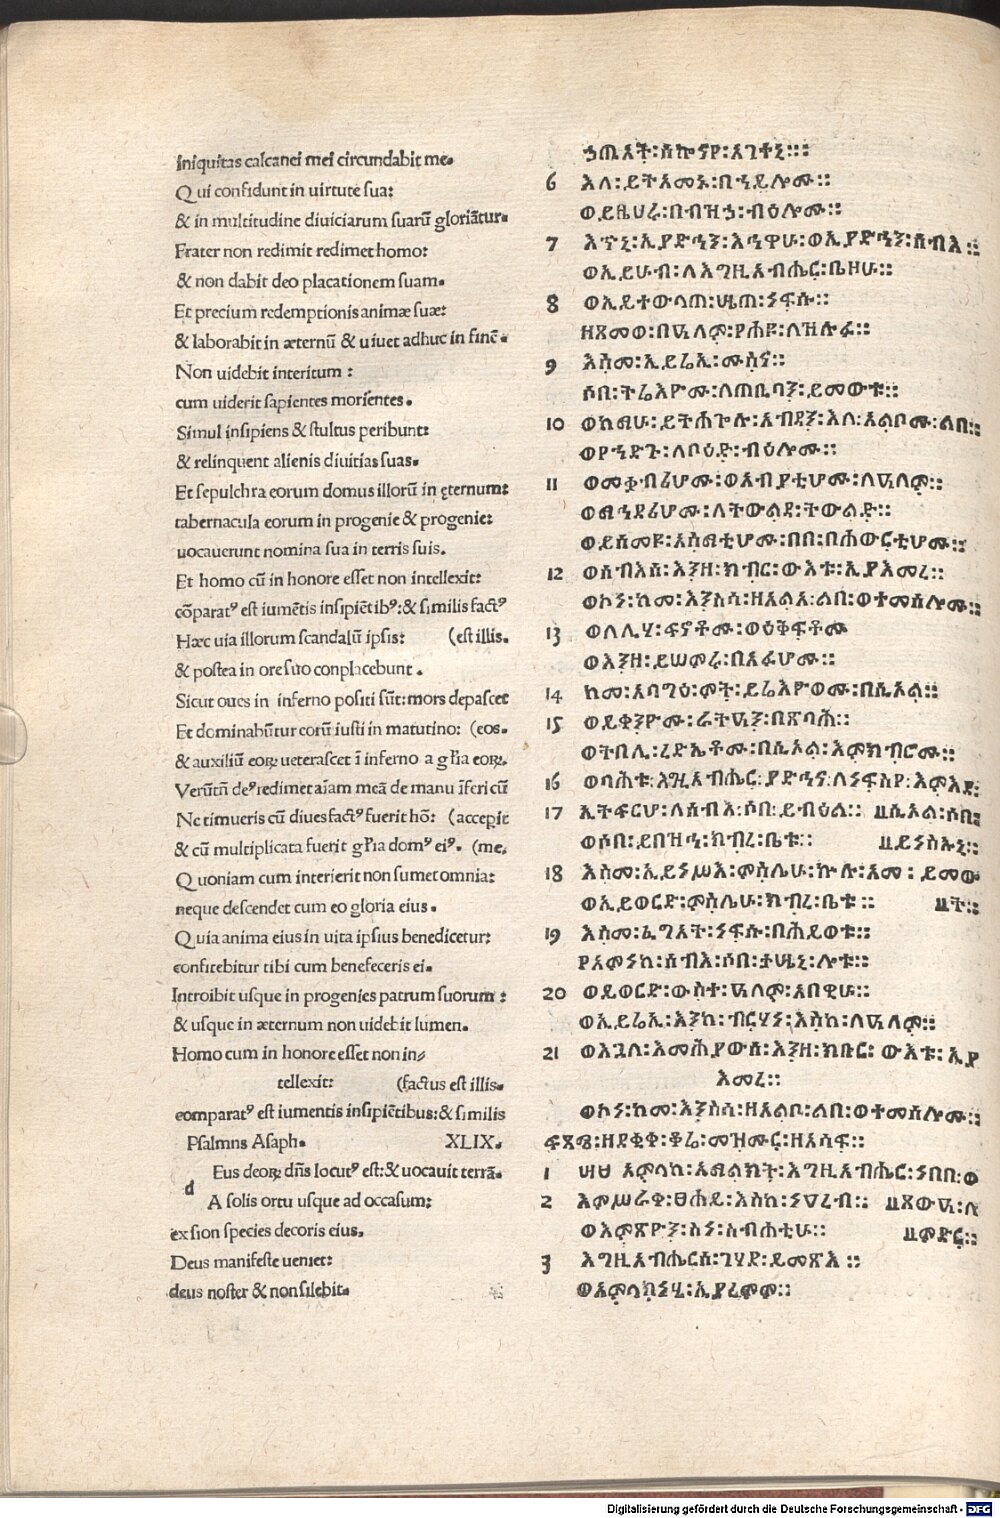 Iniquitas calcanei mei circundabit me.
Qui confidunt in uirtute sua:
& in multitudine diuiciarum suarū gloriātur.
Frater non redimit redimet homo:
& non dabit deo placationem suam.
Et precium redemptionis animæ suæ:
& laborabit in æternū & uiuet adhuc in finē.
Non uidebit interitum :
cum uiderit sapientes morientes.
Simul insipiens & stultus peribunt:
& relinquent alienis diuitias suas.
Et sepulchra eorum domus illorū in ęternum:
tabernacula eorum in progenie & progenie:
uocauerunt nomina sua in terris suis.
Et homo cū in honore esset non intellexit:
cōparatꝰ est iumētis insipiētibꝰ:& similis factꝰ
Hæc uia illorum scandalū ipsis: (est illis.
& postea in ore suo conplacebunt .
Sicut oues in inferno positi sūt:mors depascet
Et dominabūtur eorū iusti in matutino: (eos.
& auxiliū eoꝝ ueterascet ī inferno a gl̄ia eoꝝ.
Verūtn̄ deꝰ redimet aīam meā de manu īferi cū
Ne timueris cū diues factꝰ fuerit hō: (accepit
& cū multiplicata fuerit gl̄ia domꝰ eiꝰ. (me.
Quoniam cum interierit non sumet omnia:
neque descendet cum eo gloria eius.
Quia anima eius in uita ipsius benedicetur:
confitebitur tibi cum benefeceris ei.
Introibit usque in progenies patrum suorum :
& usque in æternum non uidebit lumen.
Homo cum in honore esset non in⸗
tellexit: (factus est illis.
comparatꝰ est iumentis insipiētibus:& similis
Psalmns Asaph. XLIX.
dEus deoꝝ dn̄s locutꝰ est:& uocauit terrā.
A solis ortu usque ad occasum:
ex sion species decoris eius.
Deus manifeste ueniet:
deus noster & non silebit.
ኃጢአት፡ሰኰናየ፡አገተኒ።
6 እለ፡ይትአመኑ፡በኀይሎሙ።
ወይዜሀሩ፡በብዝኀ፡ብዕሎሙ።
7 እኁኒ፡ኢያድኅን፡እኅዋሁ፡ወኢያድኅን፡ሰብእ።
ወኢይሁብ፡ለእግዚአብሔር፡ቤዛሁ።
8 ወኢይተውላጠ፡ሤጠ፡ነፍሱ።
ዘጻመወ፡በዓለም፡የሐዩ፡ለዝሉፉ።
9 እስመ፡ኢይሬኢ፡ሙስና።
ሶበ፡ትሬእዮሙ፡ለጠቢባን፡ይመውቱ።
10 ወከማሁ፡ይትሐጐሉ፡አብዳን፡እለ፡አልቦሙ፡ልበ።
ወየኀድጉ፡ለባዕድ፡ብዕሎሙ።
11 ወመቃብሪሆሙ፡ወአብያቲሆሙ፡ለዓለም።
ወማኅደሪሆሙ፡ለትውልደ፡ትውልድ።
ወይሰመዩ፡አስማቲሆሙ፡በበ፡በሐውርቲሆሙ።
12 ወሰብእሰ፡እንዘ፡ክቡር፡ውእቱ፡ኢያእመረ።
ወኮነ፡ከመ፡እንስሳ፡ዘአልቦ፡ልበ፡ወተመሰሎሙ።
13 ወለሊሃ፡ፍኖቶሙ፡ወዕቅፍቶሙ
ወእንዘ፡ይሠምሩ፡በአፉሆሙ።
14 ከመ፡አባግዕ፡ሞት፡ይሬእዮሙ፡በሲኦል።
15 ወይቀንዮሙ፡ራትዓን፡በጽባሕ።
ወትበሊ፡ረድኤቶሙ፡በሲኦል፡እምክብሮሙ።
16 ወባሕቱ፡እግዚአብሔር፡ያድኅና፡ለነፍስየ፡እምእደ፡
17 ኢትፍርሆ፡ለሰብእ፡ሶበ፡ይብዕል። ፡ሲኦል፡ሶበ፡
ወሶበ፡ይበዝኅ፡ክብረ፡ቤቱ። ይነስኡኒ።
18 እስመ፡ኢይነሥእ፡ምስሌሁ፡ኵሉ፡አመ፡ይመው
ወኢይወርድ፡ምስሌሁ፡ክብረ፡ቤቱ። ት።
19 እስመ፡ፈግዐት፡ነፍሱ፡በሕይወቱ።
የአምነከ፡ሰብእ፡ሶበ፡ታሤኒ፡ሎቱ።
20 ወይወርድ፡ውስተ፡ዓለመ፡አበዊሁ።
ወኢይሬኢ፡እንከ፡ብርሃነ፡እስከ፡ለዓለም።
21 ወእጓለ፡እመሕያውሰ፡እንዘ፡ክቡር፡ውእቱ፡ኢያ
እመረ።
ወኮነ፡ከመ፡እንስሳ፡ዘአልቦ፡ልበ፡ወተመሰሎሙ።
፵፱፡ዘደቂቀ፡ቆሬ፡መዝሙር፡ዘአሳፍ።
1 አምላከ፡አማልክት፡እግዚአብሔር፡ነበበ፡ወ
2 እምሥራቀ፡ፀሐይ፡እስከ፡ነዓረብ። ጸውዓ፡ለ
ወእምጽዮን፡ስነ፡ስብሐቲሁ። ምድር።
3 እግዚአብሔርሰ፡ገሃደ፡ይመጽእ።
ወአምላክነሂ፡ኢያረምም።
Digitalisierung gefördert durch die Deutsche Forschungsgemeinschaft - DFG